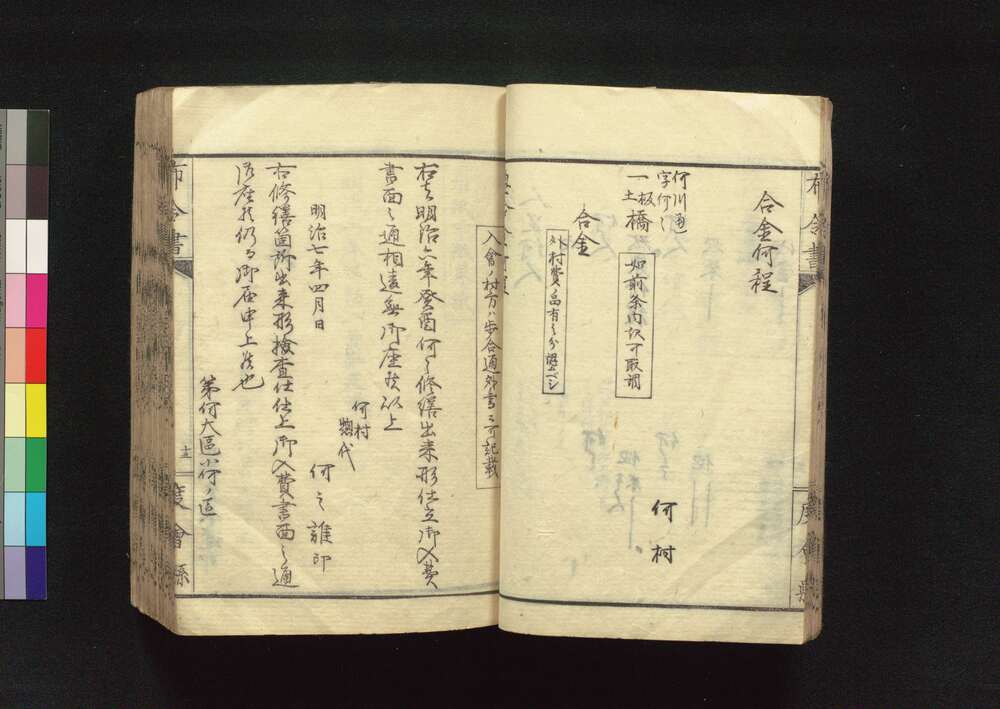 合金何程
何川通
字何々
一板橋
土
如前条内訳可取調
何村
合金
外村費ノ留有之分認ベシ
入會ノ村方ハ歩合通外書ニ可記載
右者明治六年癸酉何々修繕出来形仕立御入費
書面之通相違無御座候以上
何村
惣代
何之誰印
明治七年四月日
右修繕箇所出来形検査仕仕上御入費書面之通
御座候仍而御届申上候也
第何大區小何ノ區
布令書
十二
度會縣